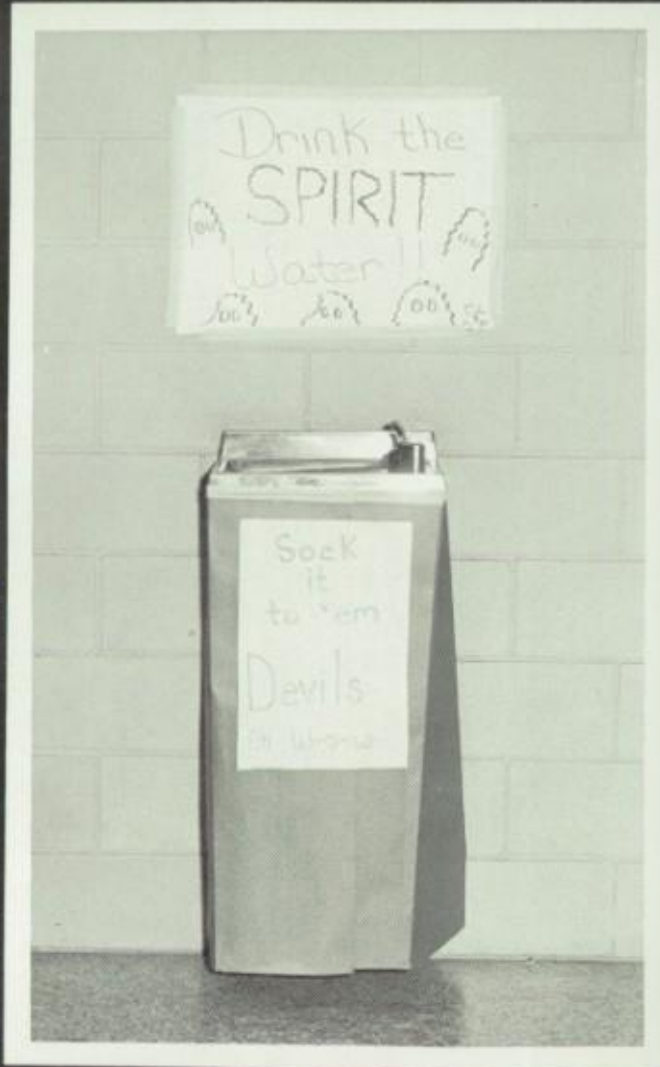 Drink the
SPIRIT
Water!!
Sock
it
to 'em
Devils